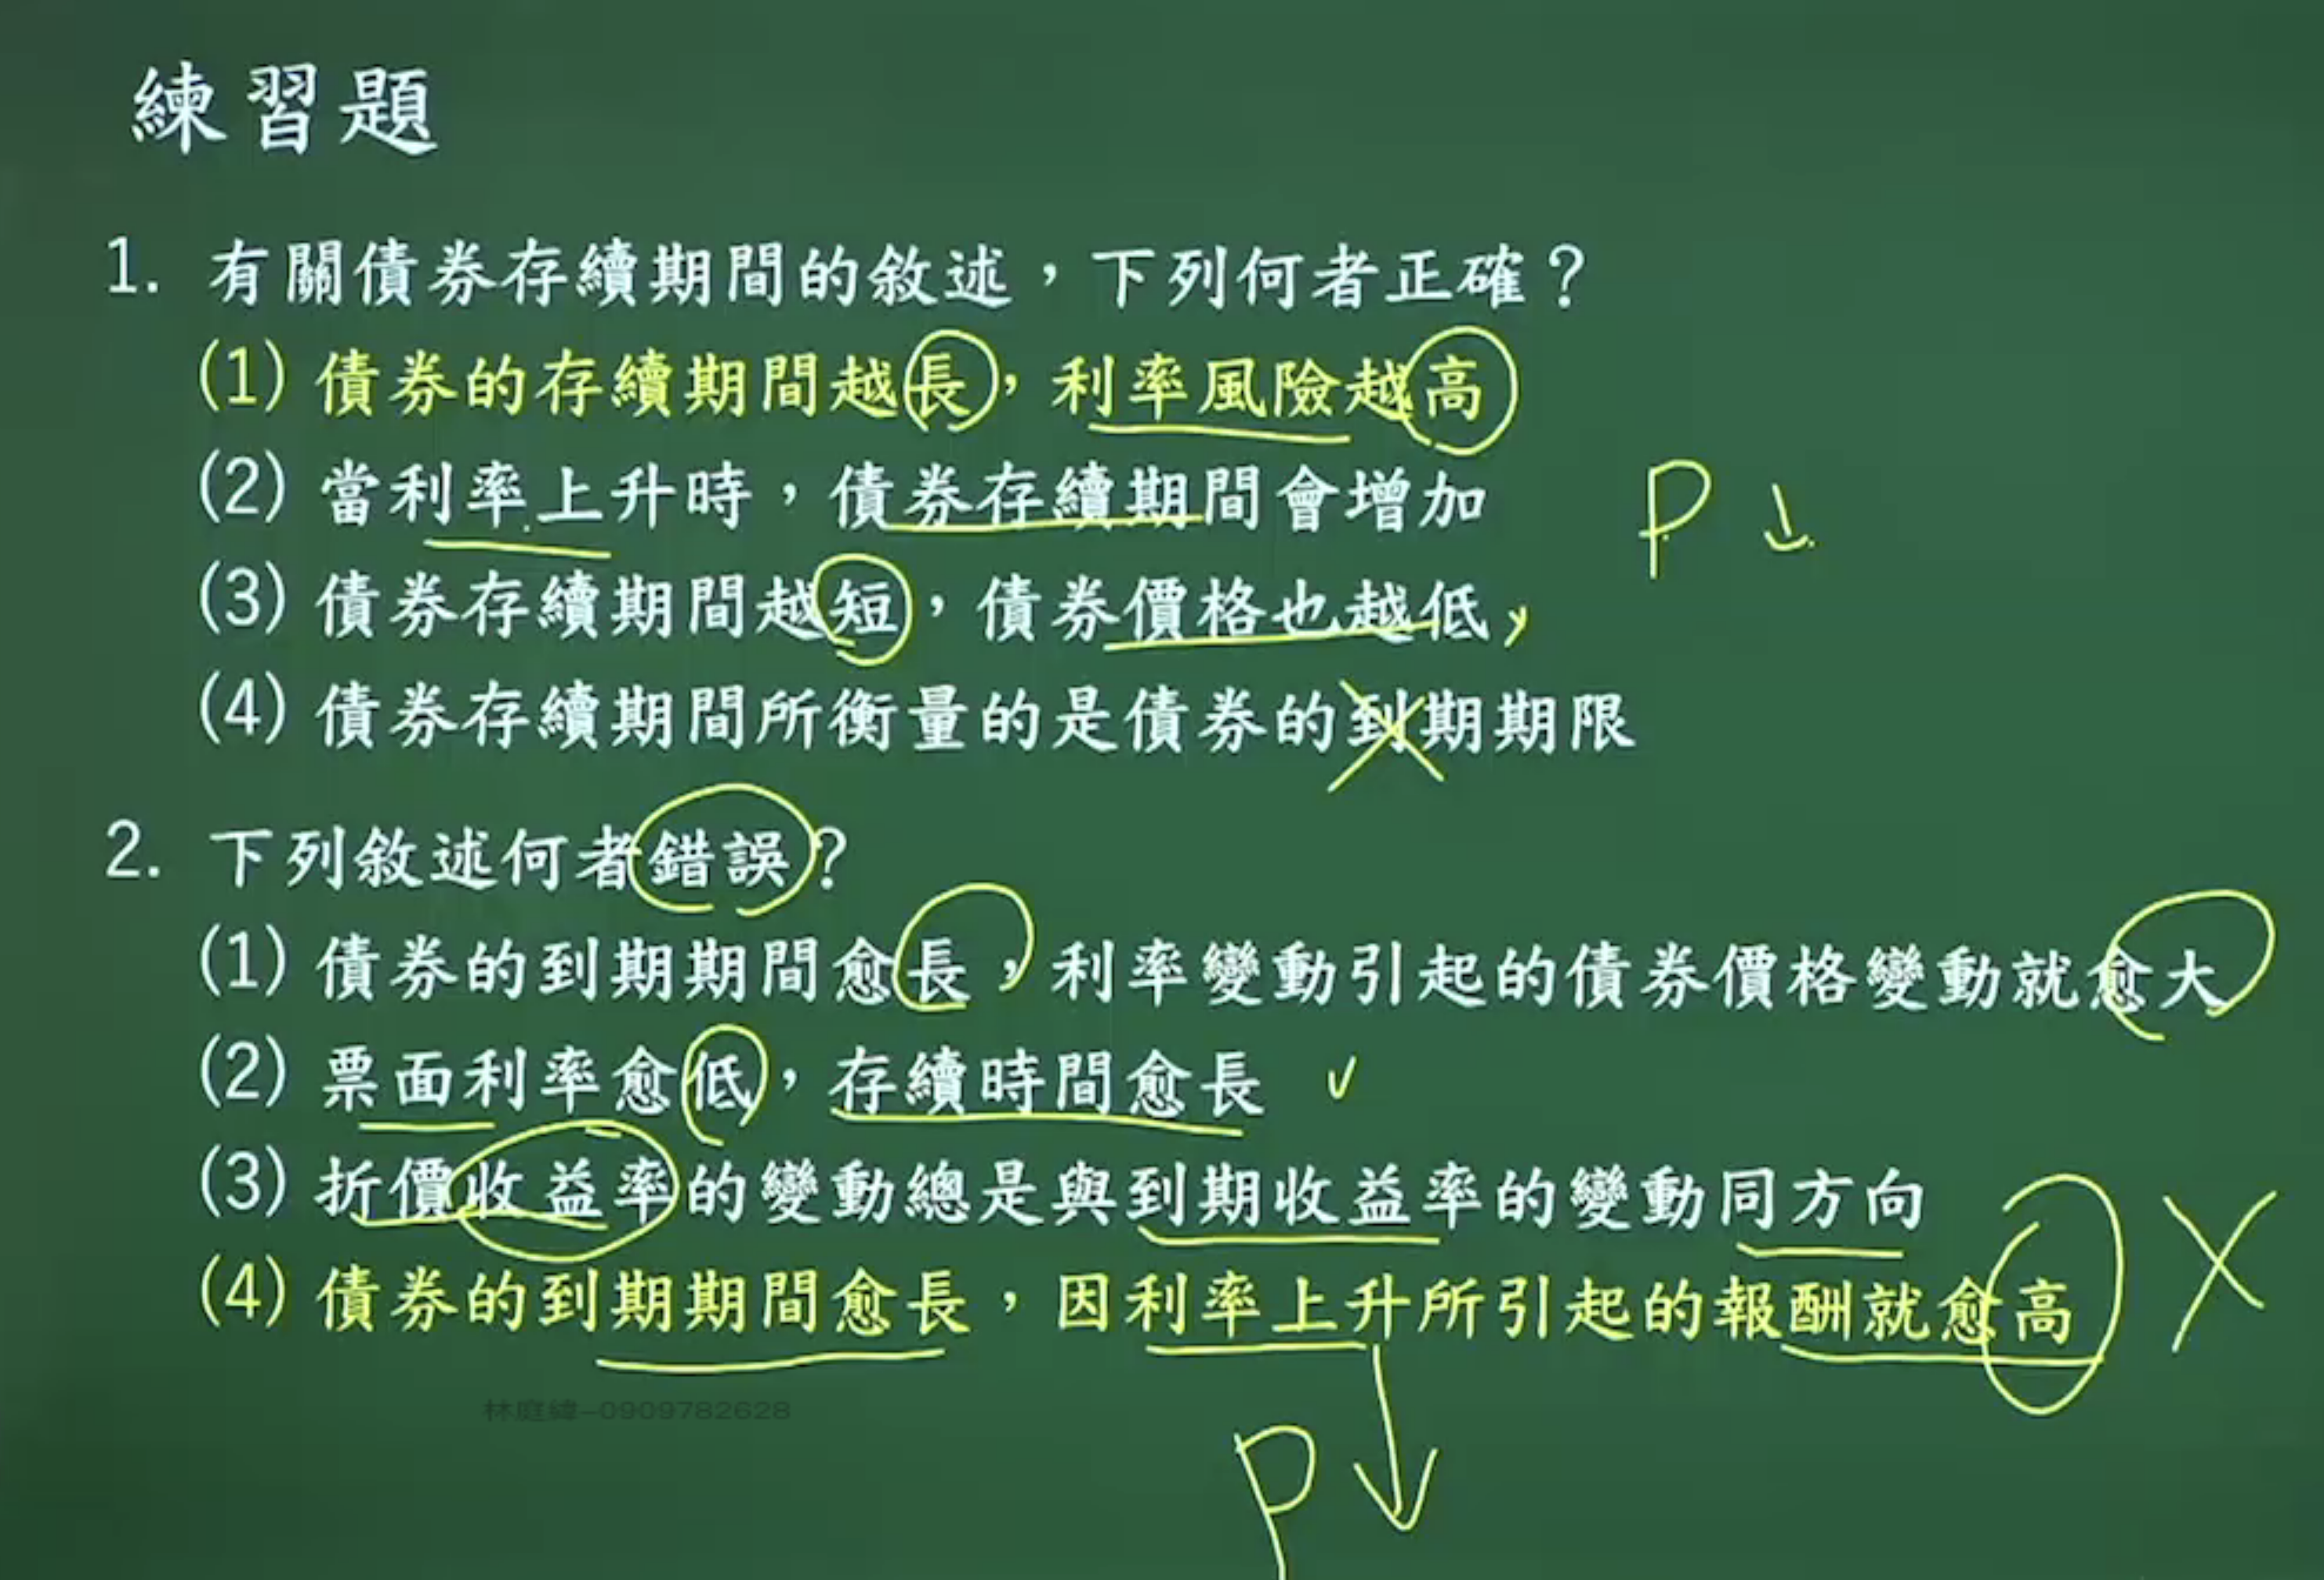 練習題
1. 有關債券存續期間的敘述，下列何者正確？
(1) 債券的存續期間越長，利率風險越高
(2) 當利率上升時，債券存續期間會增加
P↓
(3) 債券存續期間越短，債券價格也越低
(4) 債券存續期間所衡量的是債券的到期期限
2. 下列敘述何者錯誤？
(1) 債券的到期期間愈長，利率變動引起的債券價格變動就愈大
(2) 票面利率愈低，存續時間愈長
(3) 折價收益率的變動總是與到期收益率的變動同方向
(4) 債券的到期期間愈長，因利率上升所引起的報酬就愈高
林庭緯-0909782628
P↓